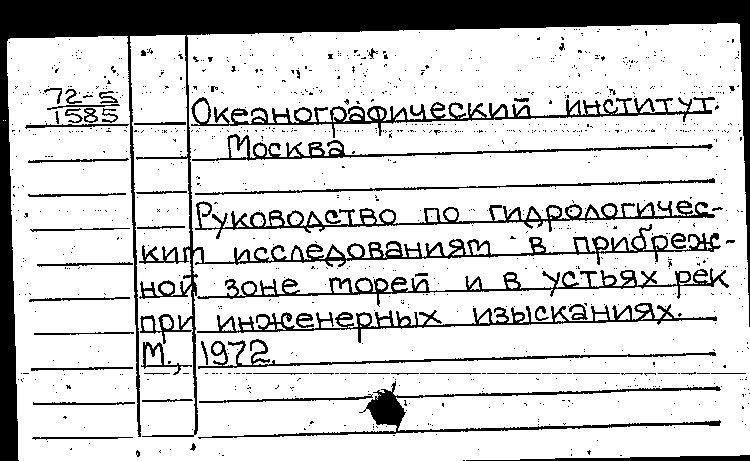 72-5
1585
Океанографический институт.
Москва.
Руководство по гидрологичес-
ким исследованиям в прибреж-
ной зоне морей и в устьях рек
при инженерных изысканиях.
М., 1972.